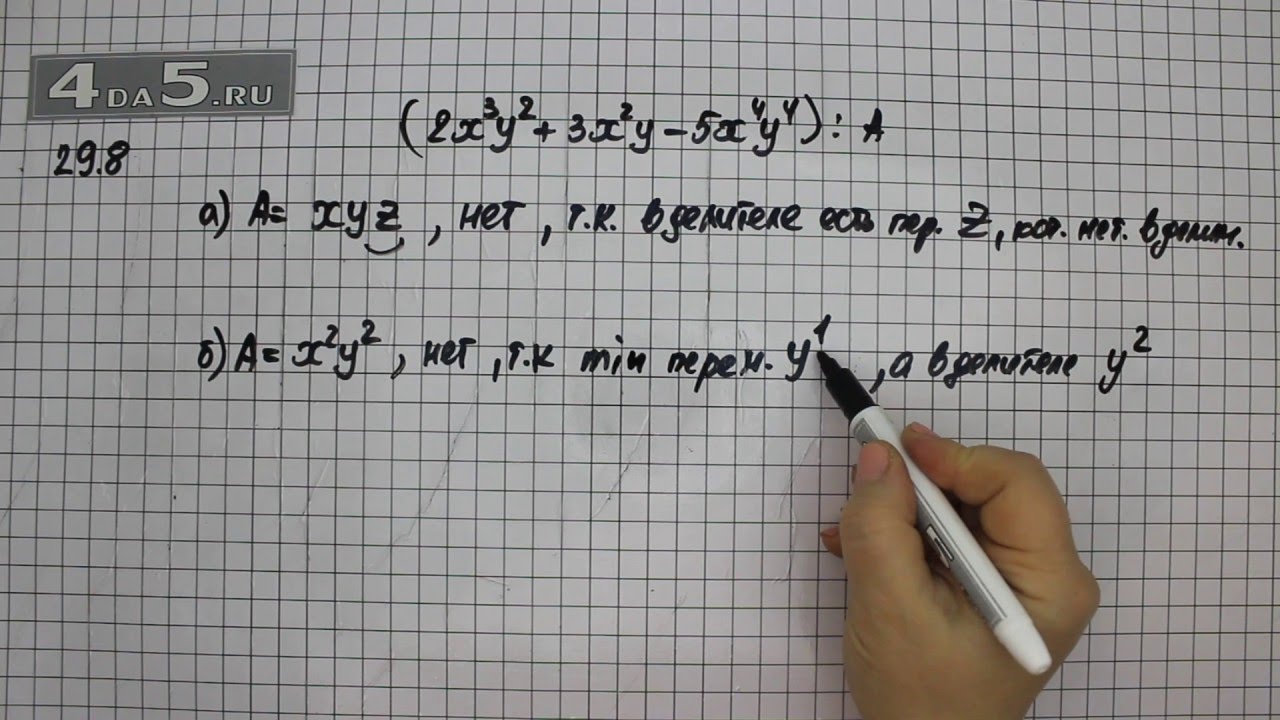 4DA5.RU
(2x³y² + 3x²y − 5x⁴y⁴) : A
29.8
а) A = xyz, нет, т.к. в делителе есть пер. Z, кот. нет. в делим.
б) A = x²y², нет, т.к min перем. y¹, а в делителе y²